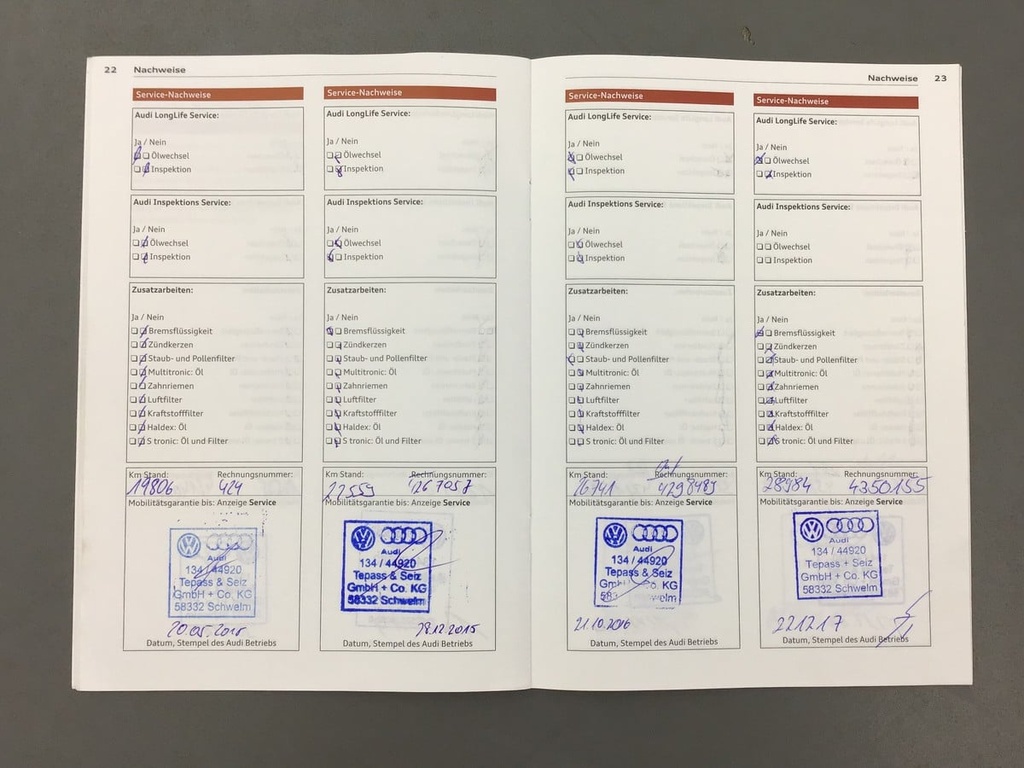 22 Nachweise
Service-Nachweise
Audi LongLife Service:
Ja / Nein
Ölwechsel
Inspektion
Audi Inspektions Service:
Ja / Nein
Ölwechsel
Inspektion
Zusatzarbeiten:
Ja / Nein
Bremsflüssigkeit
Zündkerzen
Staub- und Pollenfilter
Multitronic: Öl
Zahnriemen
Luftfilter
Kraftstofffilter
Haldex: Öl
S tronic: Öl und Filter
Km Stand: Rechnungsnummer:
19806 424
Mobilitätsgarantie bis: Anzeige Service
Audi
134 / 44920
Tepass & Seiz
GmbH + Co. KG
58332 Schwelm
Datum, Stempel des Audi Betriebs
Service-Nachweise
Audi LongLife Service:
Ja / Nein
Ölwechsel
Inspektion
Audi Inspektions Service:
Ja / Nein
Ölwechsel
Inspektion
Zusatzarbeiten:
Ja / Nein
Bremsflüssigkeit
Zündkerzen
Staub- und Pollenfilter
Multitronic: Öl
Zahnriemen
Luftfilter
Kraftstofffilter
Haldex: Öl
S tronic: Öl und Filter
Km Stand: Rechnungsnummer:
22559 1267057
Mobilitätsgarantie bis: Anzeige Service
Audi
134 / 44920
Tepass & Seiz
GmbH + Co. KG
58332 Schwelm
28.12.2015
Datum, Stempel des Audi Betriebs
Nachweise 23
Service-Nachweise
Audi LongLife Service:
Ja / Nein
Ölwechsel
Inspektion
Audi Inspektions Service:
Ja / Nein
Ölwechsel
Inspektion
Zusatzarbeiten:
Ja / Nein
Bremsflüssigkeit
Zündkerzen
Staub- und Pollenfilter
Multitronic: Öl
Zahnriemen
Luftfilter
Kraftstofffilter
Haldex: Öl
S tronic: Öl und Filter
Km Stand: Rechnungsnummer:
26741 4298489
Mobilitätsgarantie bis: Anzeige Service
Audi
134 / 44920
Tepass & Seiz
GmbH + Co. KG
Schwelm
21.10.2016
Datum, Stempel des Audi Betriebs
Service-Nachweise
Audi LongLife Service:
Ja / Nein
Ölwechsel
Inspektion
Audi Inspektions Service:
Ja / Nein
Ölwechsel
Inspektion
Zusatzarbeiten:
Ja / Nein
Bremsflüssigkeit
Zündkerzen
Staub- und Pollenfilter
Multitronic: Öl
Zahnriemen
Luftfilter
Kraftstofffilter
Haldex: Öl
S tronic: Öl und Filter
Km Stand: Rechnungsnummer:
28484 4350155
Mobilitätsgarantie bis: Anzeige Service
Audi
134 / 44920
Tepass + Seiz
GmbH + Co. KG
58332 Schwelm
221217
Datum, Stempel des Audi Betriebs